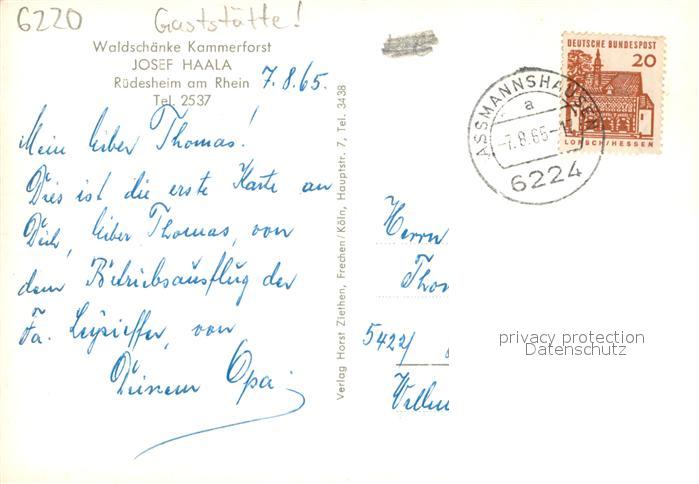 6220 Gaststätte!
Waldschänke Kammerforst
JOSEF HAALA
Rüdesheim am Rhein
Tel. 2537
7.8.65.
Mein lieber Thomas!
Dies ist die erste Karte an
Dich, lieber Thomas, von
dem Betriebsausflug der
Fa. Leysieffer, von
Deinem Opa.
Verlag Horst Ziethen, Frechen/Köln, Hauptstr. 7, Tel. 3438
DEUTSCHE BUNDESPOST
20
LORSCH/HESSEN
ASSMANNSHAUSEN
a
-7.8.65-1
6224
Herrn
Thom
5422/
privacy protection
Datenschutz